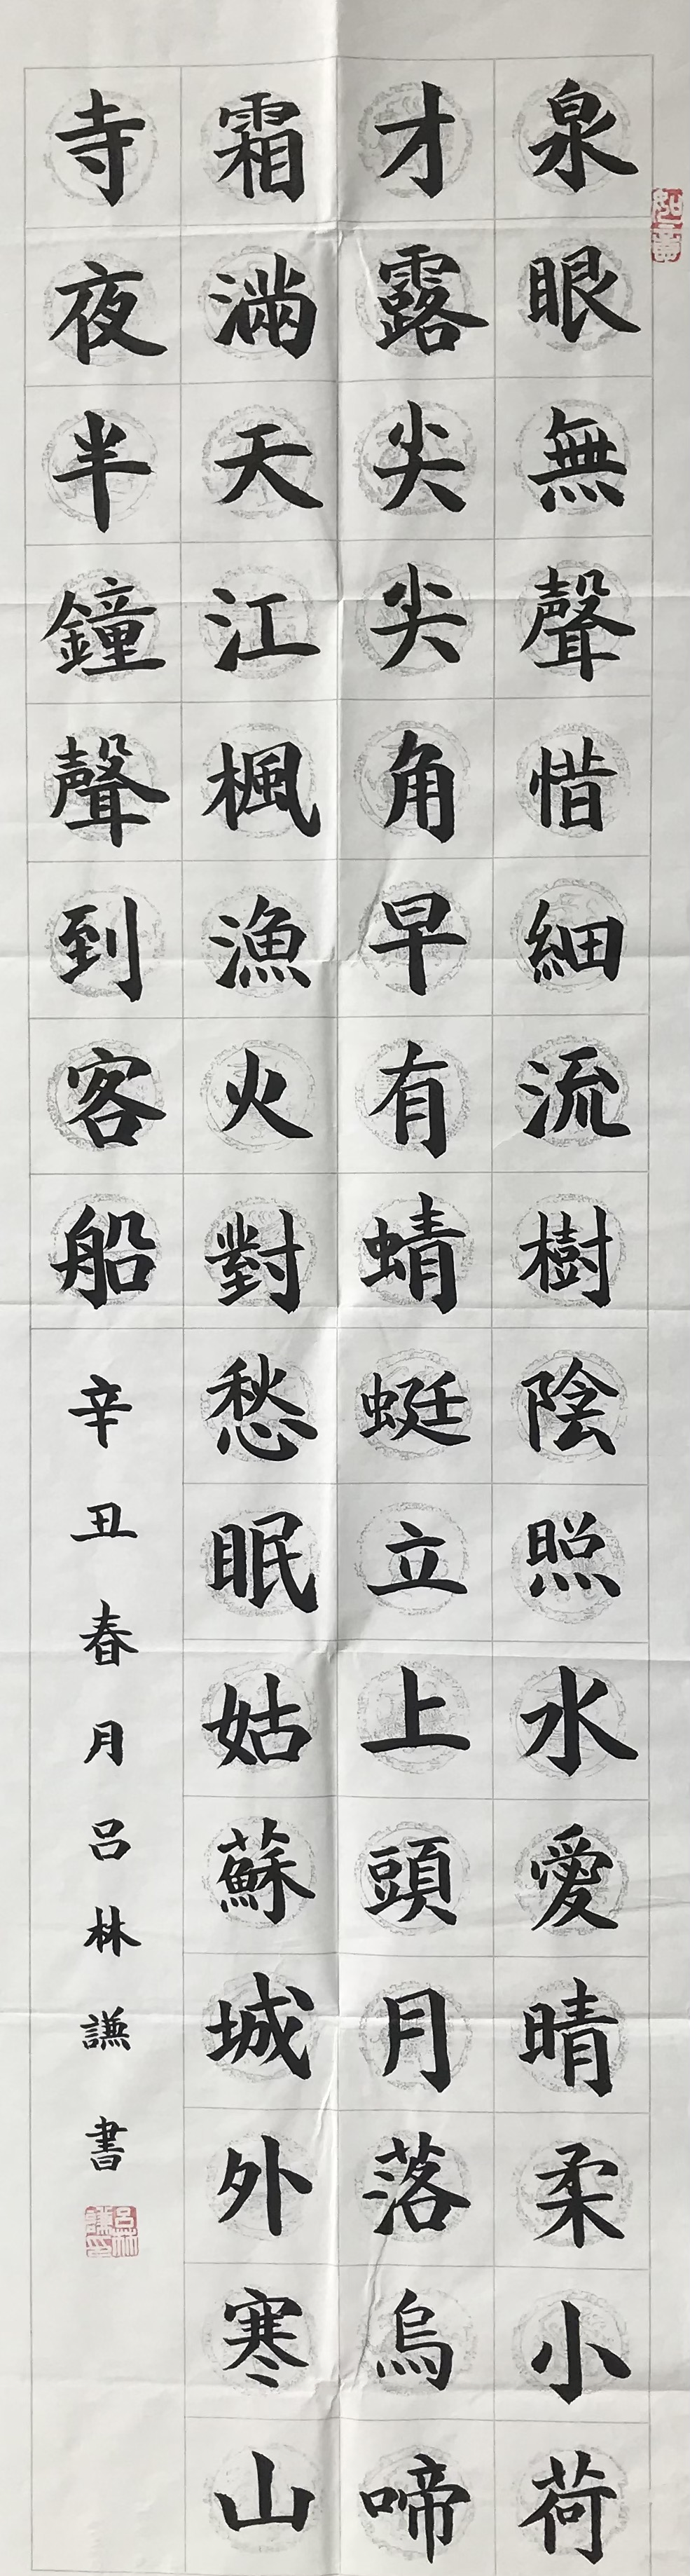 泉眼無聲惜細流樹陰照水愛晴柔小荷
才露尖尖角早有蜻蜓立上頭月落烏啼
霜滿天江楓漁火對愁眠姑蘇城外寒山
寺夜半鐘聲到客船
辛丑春月呂林謙書
呂林謙印